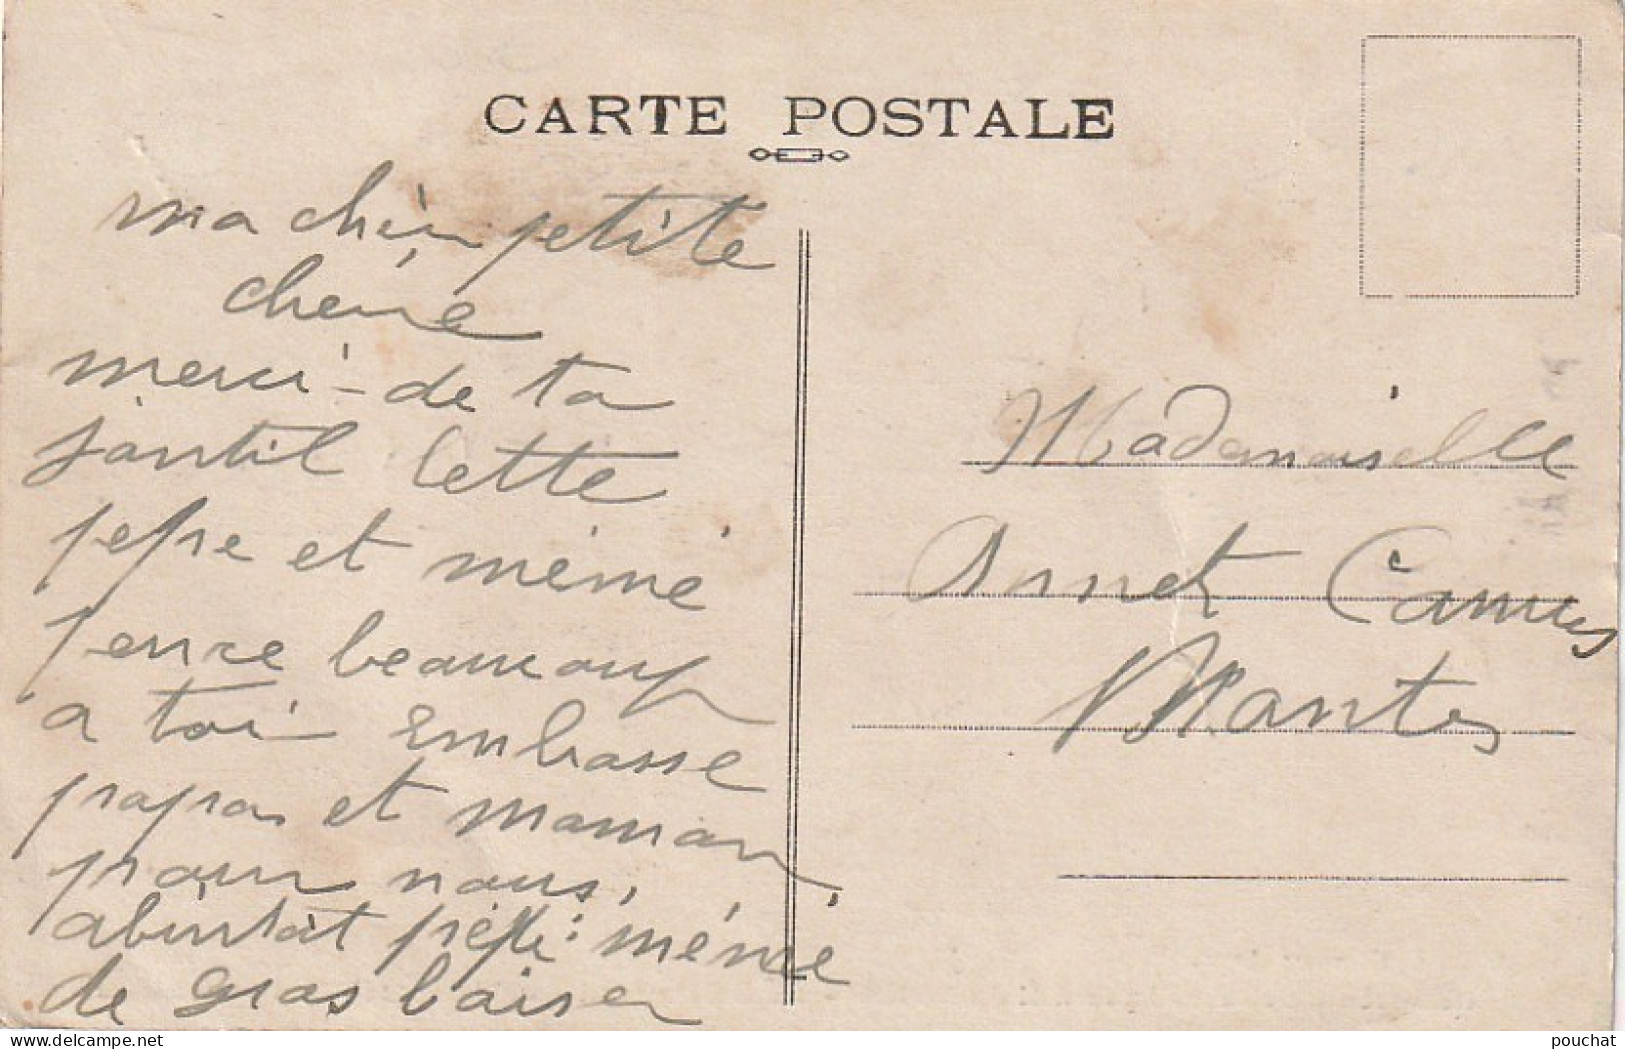 CARTE POSTALE
ma chèr petite
cherie
merci - de ta
jantil lettre
pepe et mémé
pence beaucoup
a toi Embasse
papa et maman
pour nous,
abintòt pépé: mémé
de gros baiser
Mademoiselle
Annet Camus
Mantes
© pouchat
www.delcampe.net